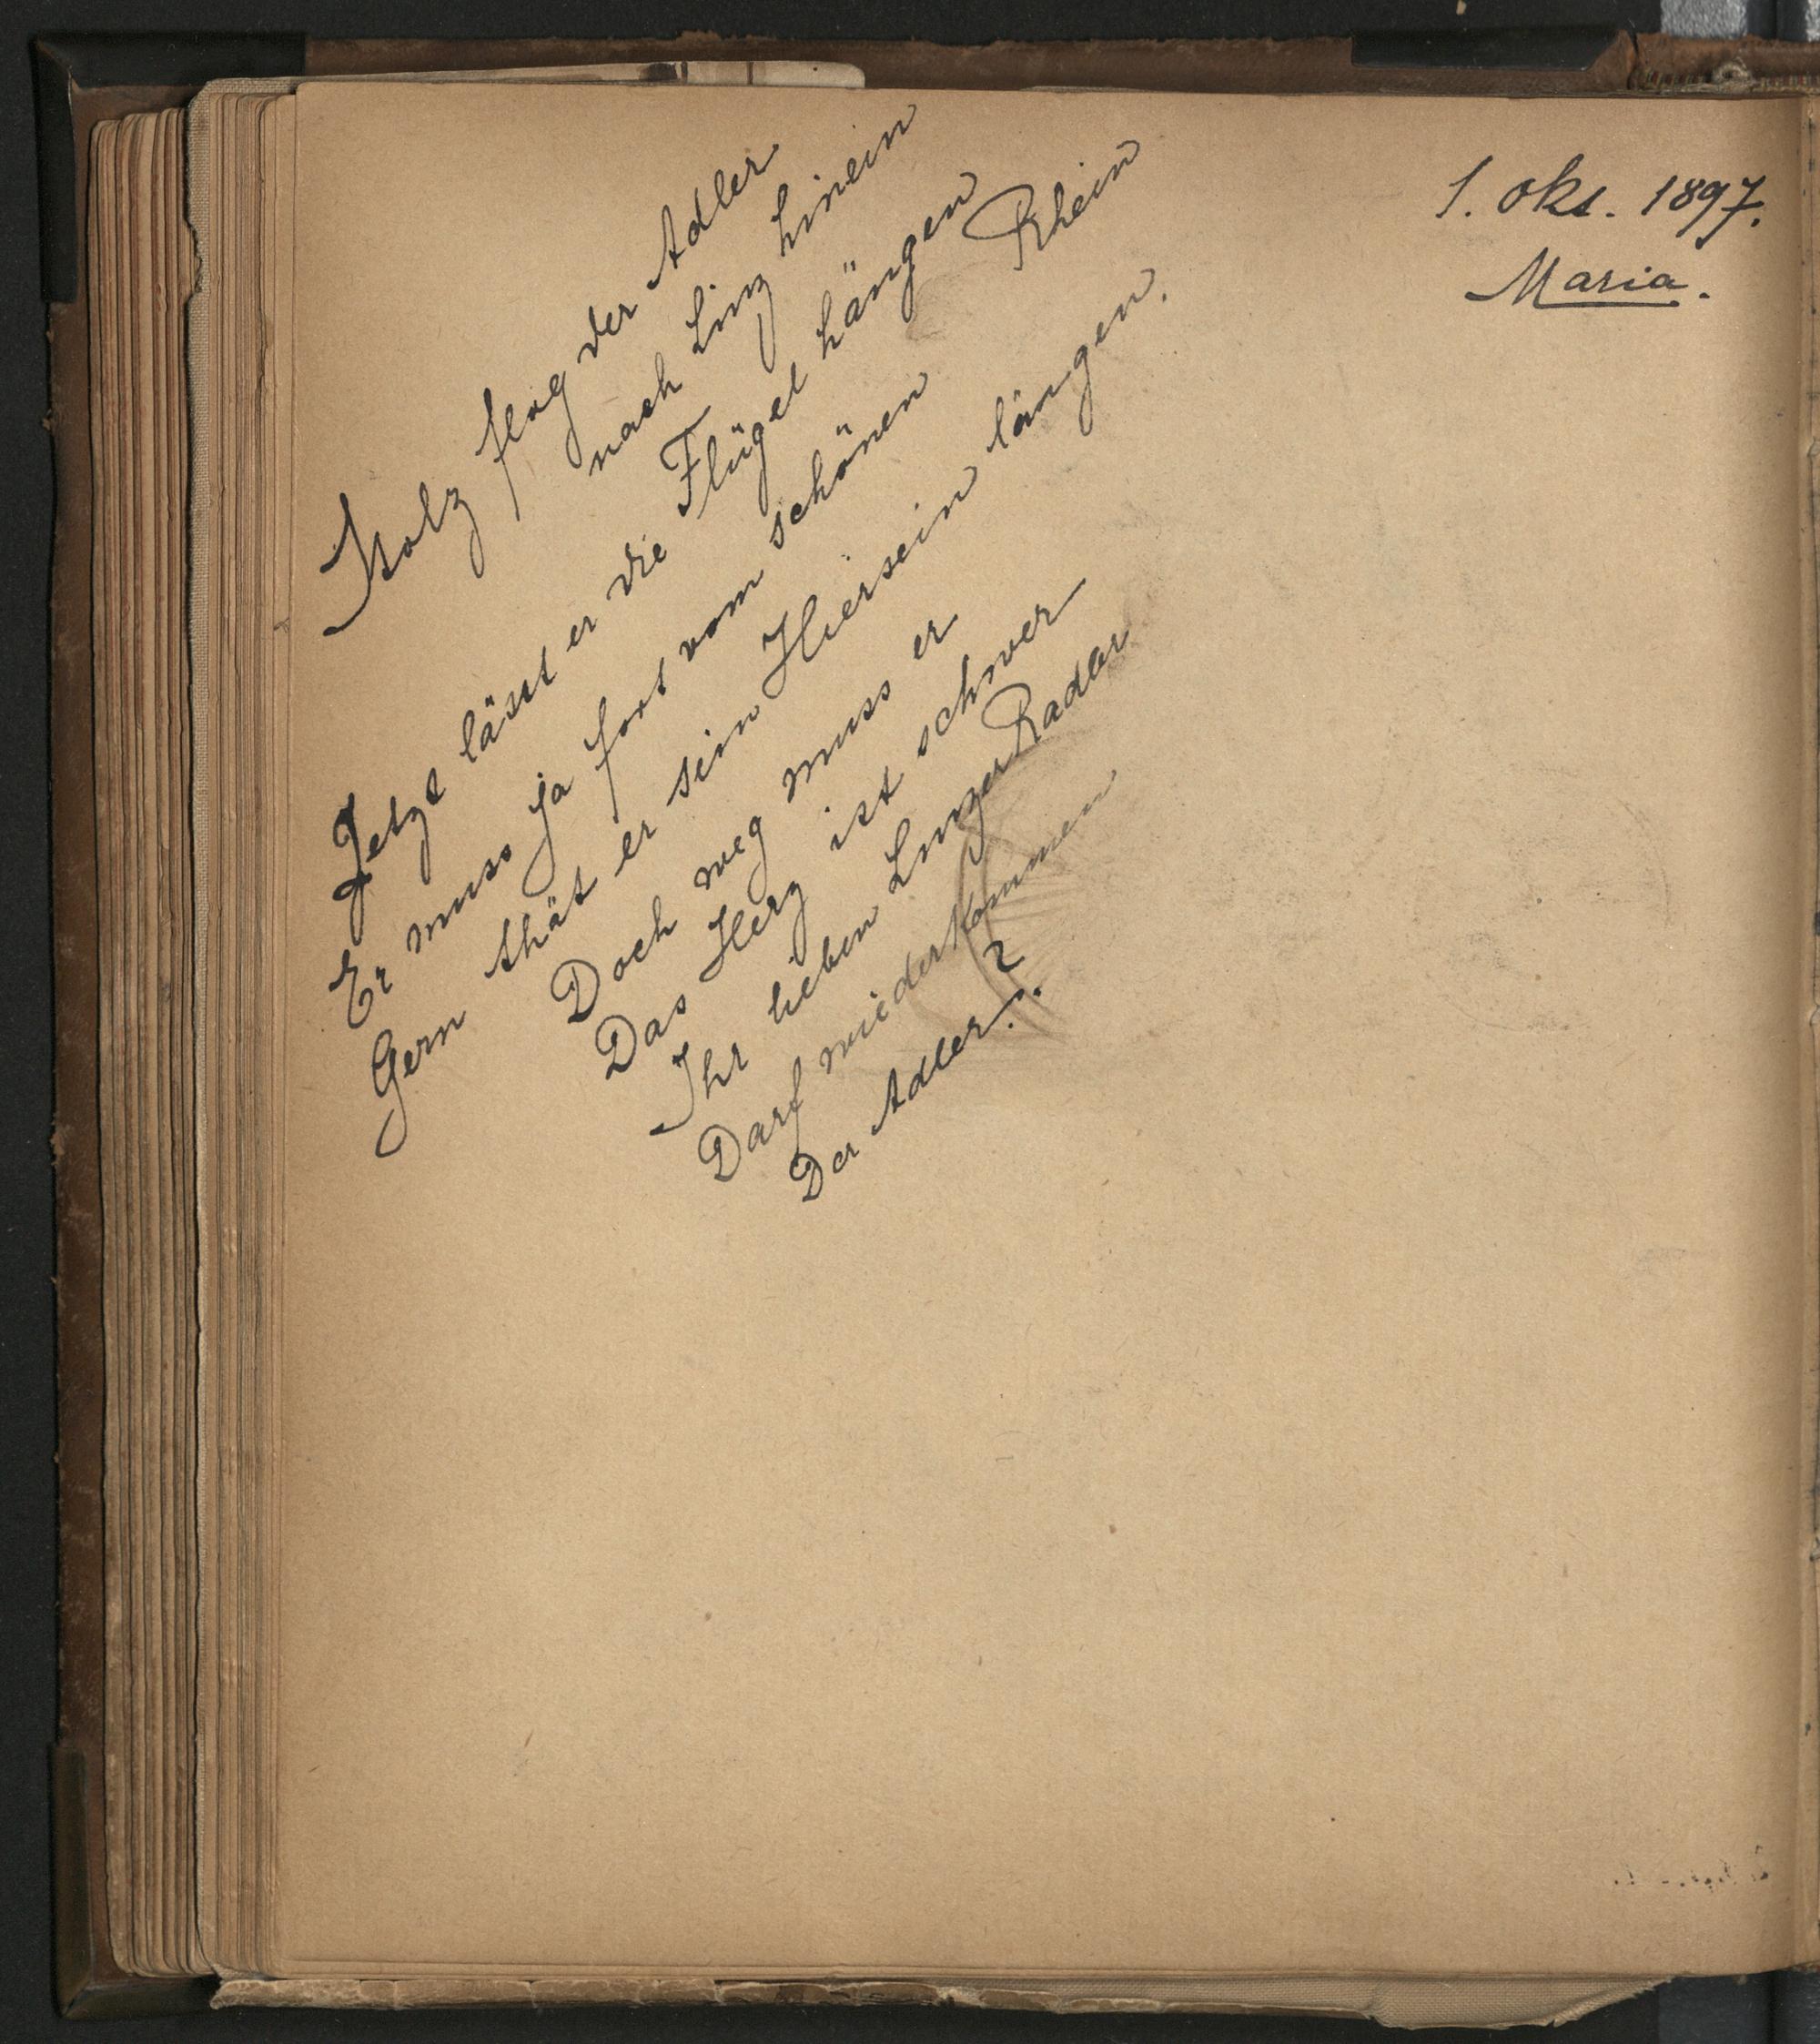 1. Okt. 1897.
Maria.
Stolz flog der Adler
nach Linz hinein
Jetzt lässt er die Flügel hängen
Er muss ja fort vom schönen Rhein
Gern thät er sein Hiersein längen.
Doch weg muss er
Das Herz ist schwer
Ihr lieben Linzer Radler
Darf wiederkommen
Der Adler?